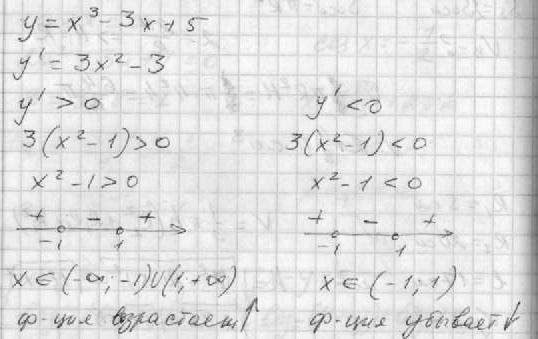 y = x³ - 3x + 5
y' = 3x² - 3
y' > 0
3(x² - 1) > 0
x² - 1 > 0
+ - +
-1 1
x ∈ (-∞; -1) ∪ (1, +∞)
ф-ция возрастает ↑
y' < 0
3(x² - 1) < 0
x² - 1 < 0
+ - +
-1 1
x ∈ (-1; 1)
ф-ция убывает ↓